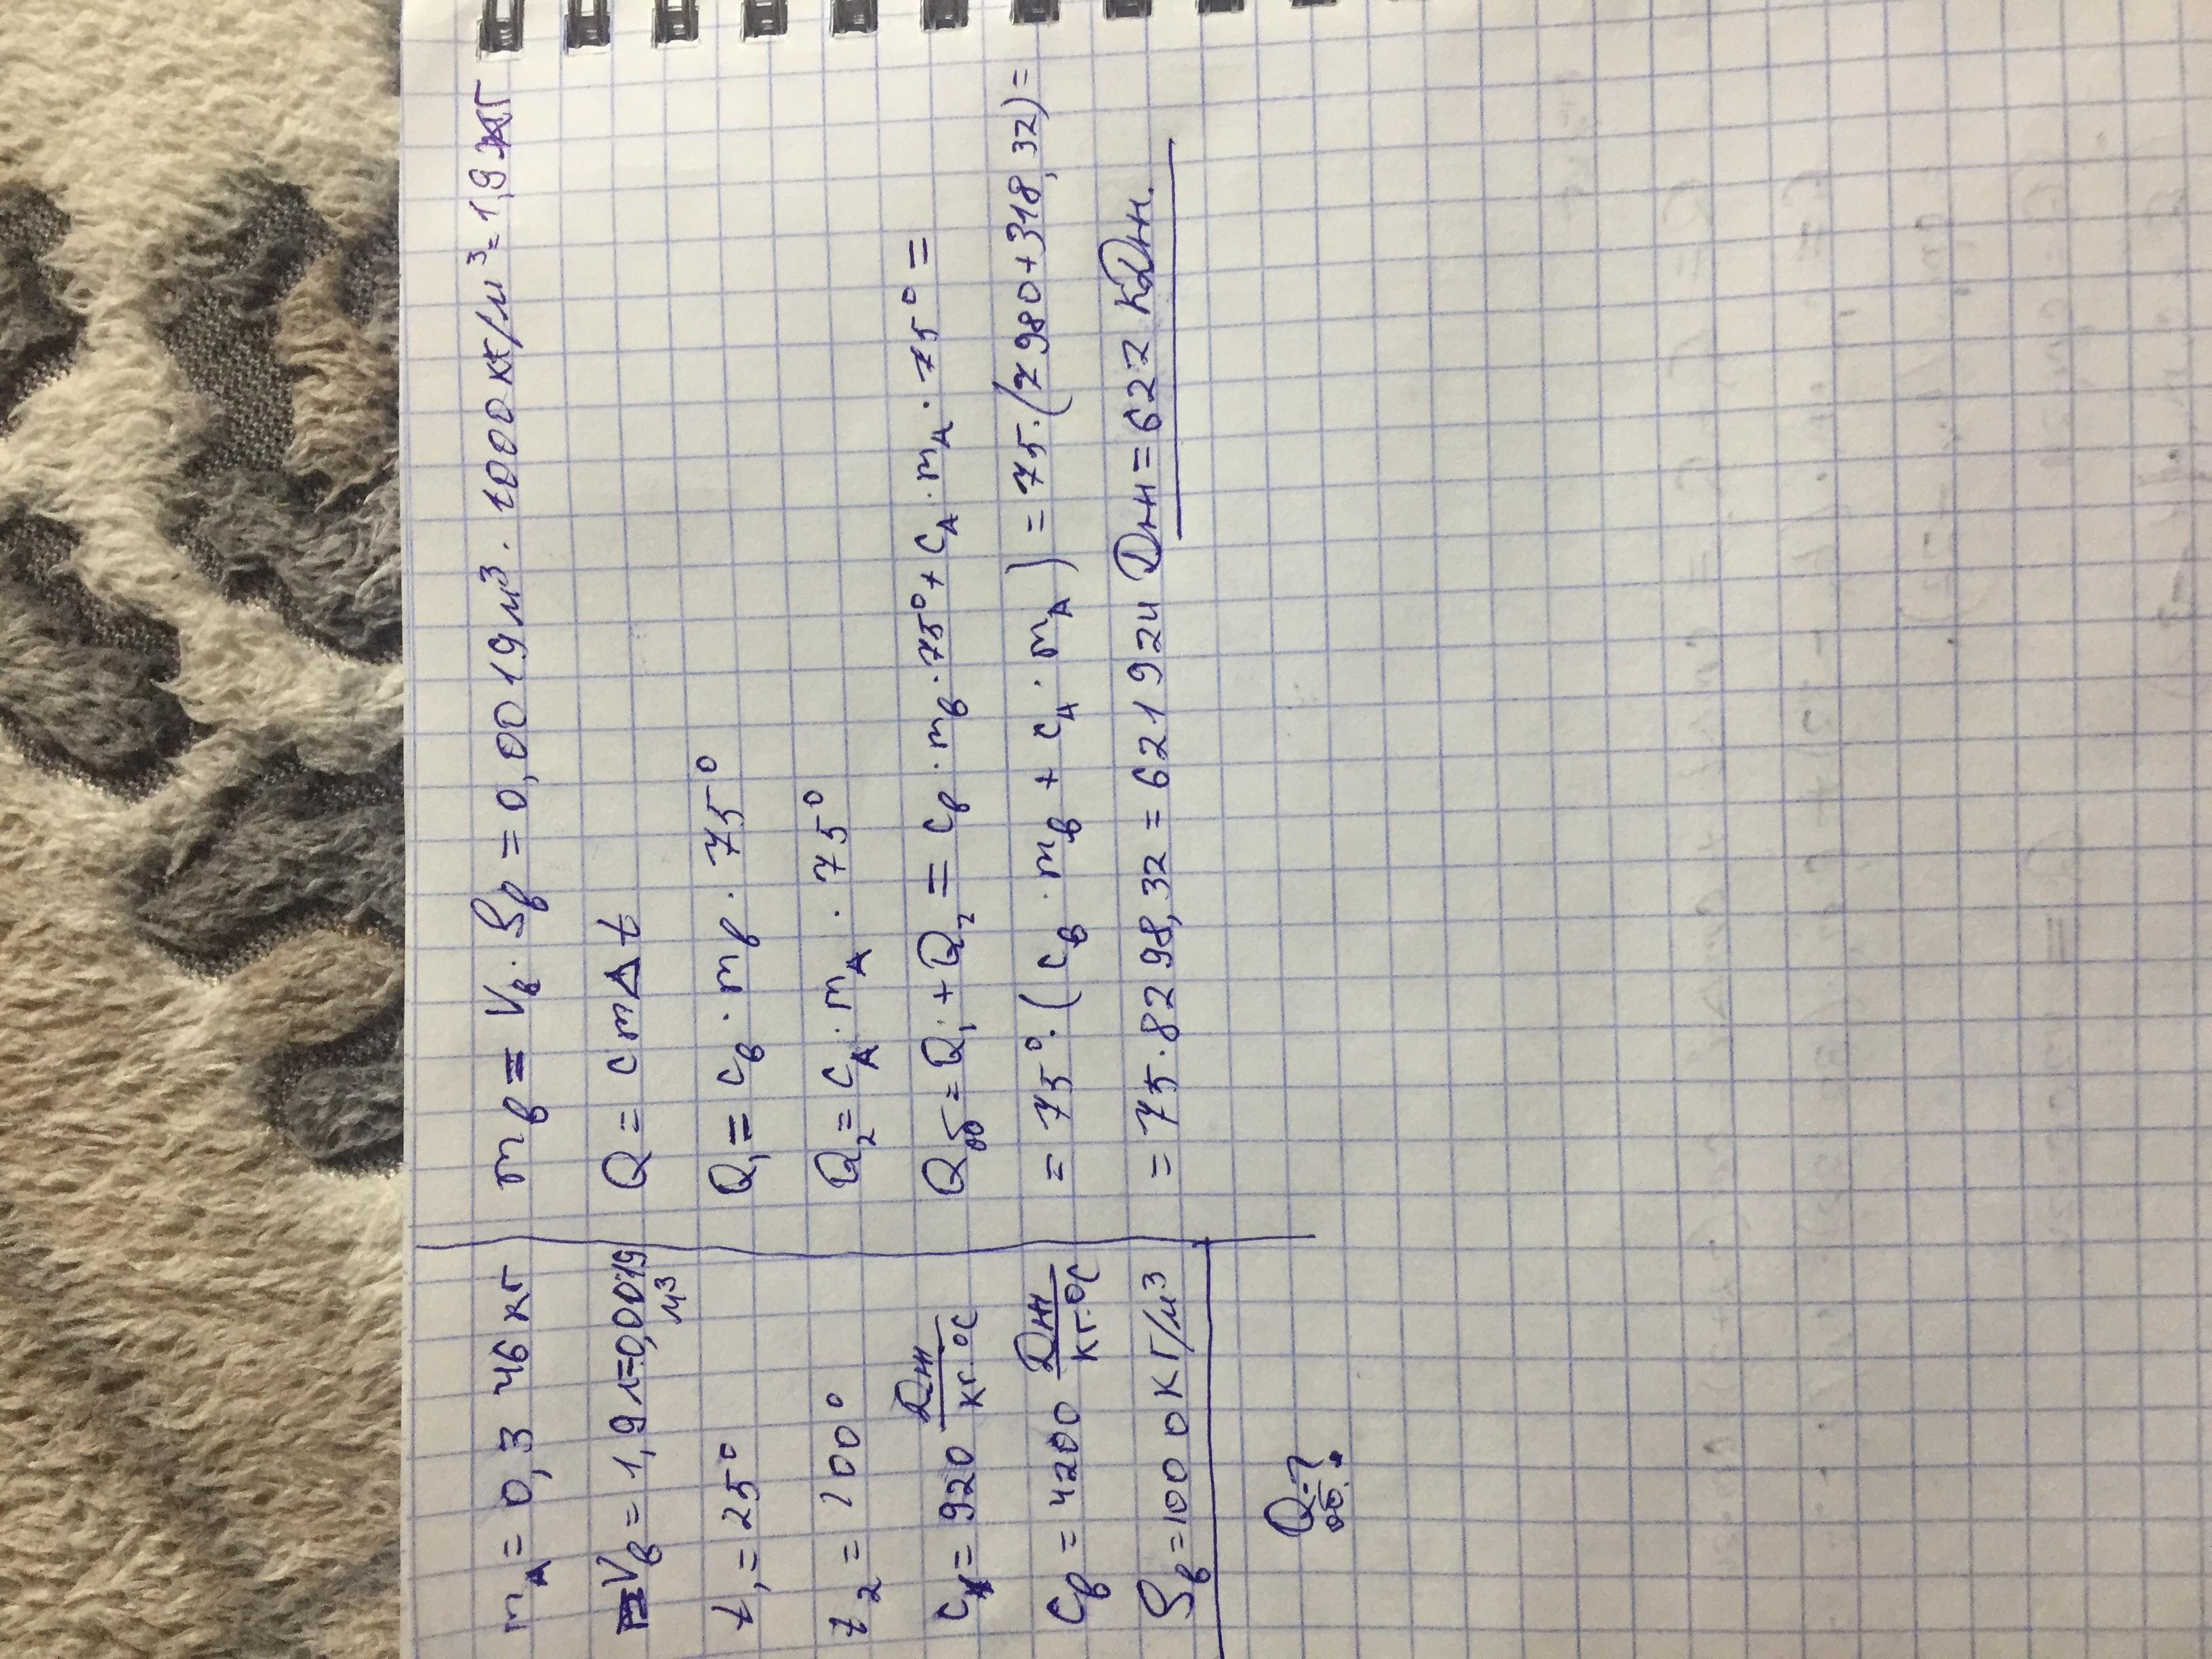 m_A = 0,346 кг
V_в = 1,9 л = 0,0019 м³
t₁ = 25°
t₂ = 100°
c_A = 920 Дж/кг·°C
c_в = 4200 Дж/кг·°C
ρ_в = 1000 кг/м³
Q_об. - ?
m_в = V_в · ρ_в = 0,0019 м³ · 1000 кг/м³ = 1,9 кг
Q = cmΔt
Q₁ = c_в · m_в · 75°
Q₂ = c_A · m_A · 75°
Q_об = Q₁ + Q₂ = c_в · m_в · 75° + c_A · m_A · 75° =
= 75° · (c_в · m_в + c_A · m_A) = 75 · (7980 + 318,32) =
= 75 · 8298,32 = 621924 Дж = 622 кДж.